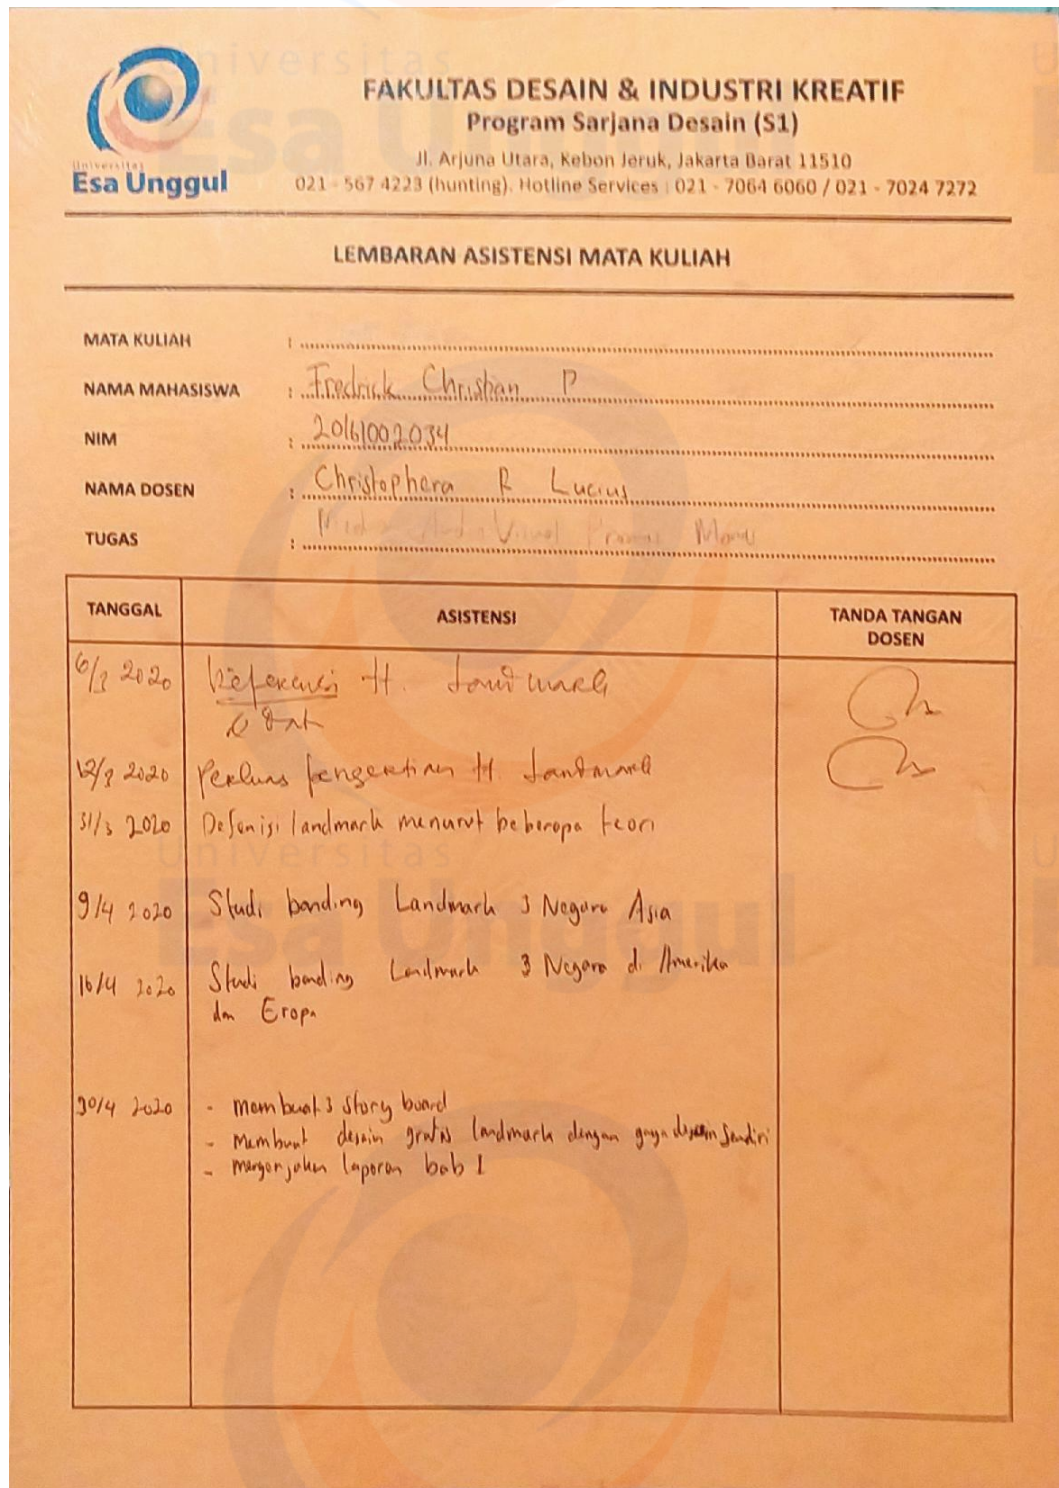 Universitas
Esa Unggul
FAKULTAS DESAIN & INDUSTRI KREATIF
Program Sarjana Desain (S1)
Jl. Arjuna Utara, Kebon Jeruk, Jakarta Barat 11510
021 - 567 4223 (hunting). Hotline Services : 021 - 7064 6060 / 021 - 7024 7272
LEMBARAN ASISTENSI MATA KULIAH
MATA KULIAH :
NAMA MAHASISWA : Fredrick Christian P
NIM : 20161002034
NAMA DOSEN : Christophera R Lucius
TUGAS : Visual
TANGGAL ASISTENSI TANDA TANGAN DOSEN
6/3 2020 Referensi tt. Landmark
12/3 2020 Perluas pengertian tt. Landmark
31/3 2020 Defenisi landmark menurut beberapa teori
9/4 2020 Studi banding Landmark 3 Negara Asia
16/4 2020 Studi banding Landmark 3 Negara di Amerika
dan Eropa
30/4 2020 - membuat 3 story board
- membuat desain grafis landmark dengan gaya desain sendiri
- mengerjakan laporan bab 1
Universitas
Esa Unggul